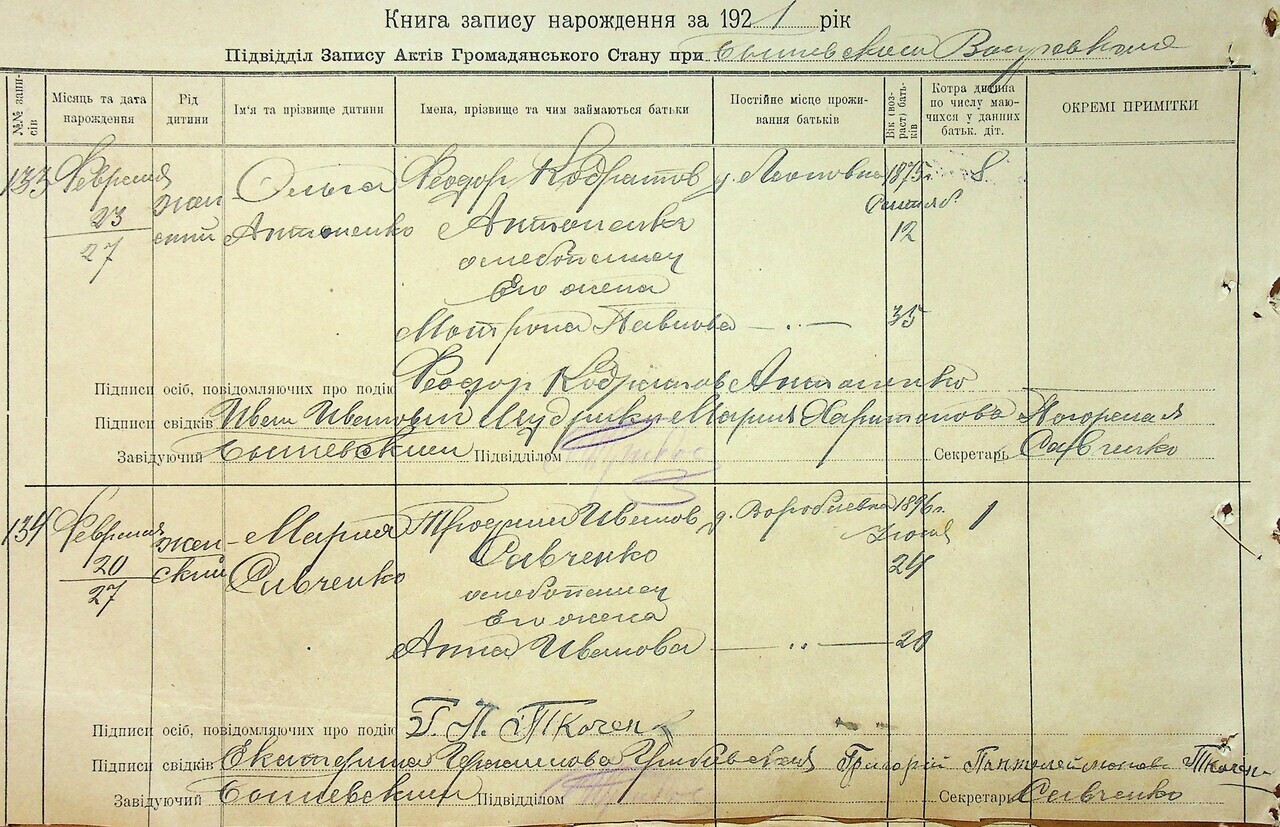 Книга запису нарождення за 1921 рік
Підвідділ Запису Актів Громадянського Стану при
№№ записів
Місяць та дата нарождення
Рід дитини
Ім'я та прізвище дитини
Імена, прізвище та чим займаються батьки
Постійне місце проживання батьків
Вік (возраст) батьків
Котра дитина по числу маючихся у данных батьк. діт.
ОКРЕМІ ПРИМІТКИ
133 Февраля Ольга Феодор Кодратов 1875 г. 8
23 жен Сентяб
27 ский Антоненко Антоненко 12
хлебопашец
Его жена
Мотрона Павлова — „ — 35
Підписи осіб, повідомляючих про подію Феодор Кодратов Антоненко
Підписи свідків Иван Иванович Мария Харитонова
Завідуючий Підвідділом Секретарь Савченко
134 Февраля Мария Трофим Иванов д. Воробиевка 1896 г. 1
20 жен Савченко
27 ский Савченко хлебопашец 24
Его жена
Анна Иванова — „ — 20
Підписи осіб, повідомляючих про подію Г. П. Ткачен
Підписи свідків Екатерина Григорій Ткачен
Завідуючий Підвідділом Секретарь Савченко